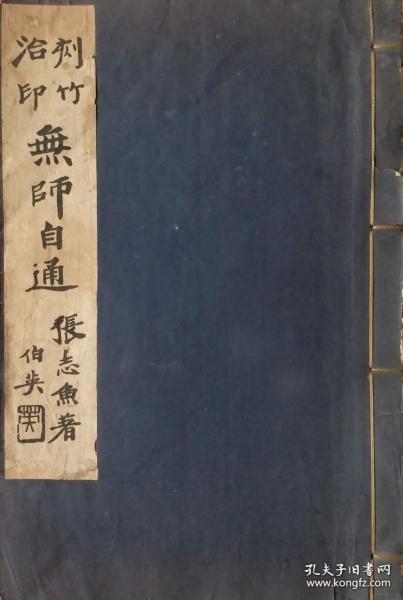 刻竹
治印
無師自通
張志魚著
伯英
孔夫子旧书网
www.kongfz.com